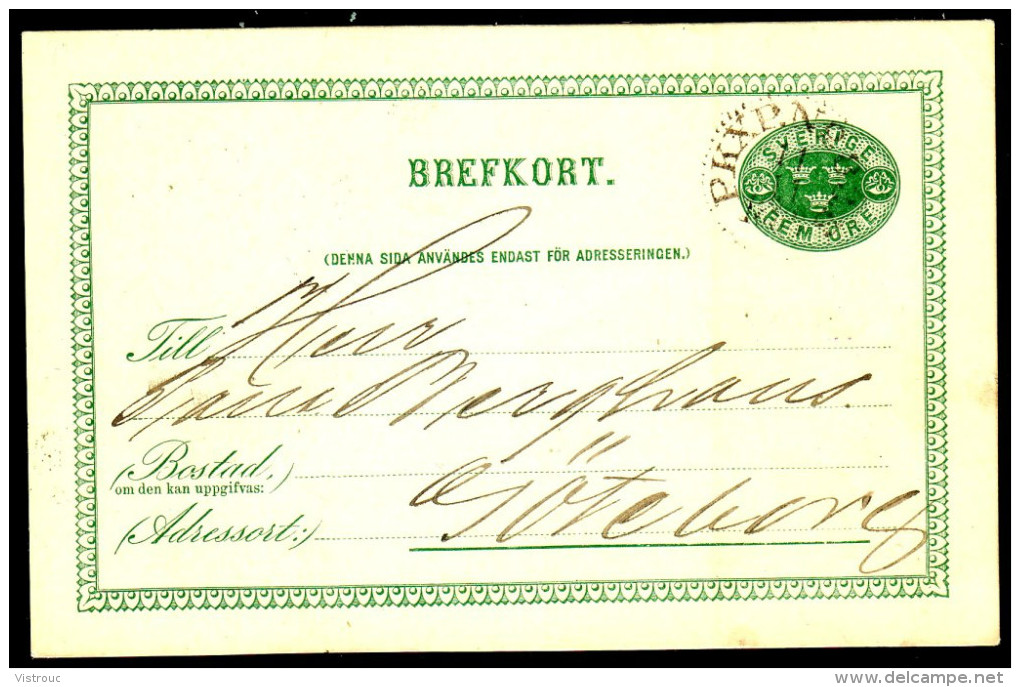 SVERIGE
FEM ÖRE
BREFKORT.
(DENNA SIDA ANVÄNDES ENDAST FÖR ADRESSERINGEN.)
Till
Herr
Berghaus.
(Bostad,)
om den kan uppgifvas:
Göteborg
(Adressort:)
Vistrouc
delcampe.net